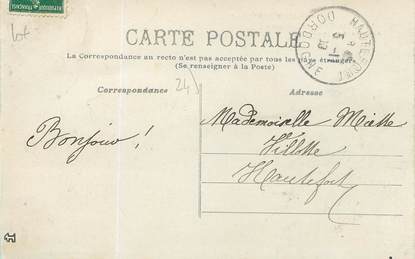 Lot
CARTE POSTALE
La Correspondance au recto n'est pas acceptée par tous les pays étrangers
(Se renseigner à la Poste)
24)
Correspondance
Adresse
HAUTEFORT
DORDOGNE
Bonjour!
Mademoiselle Miette
Villotte
Hautefort